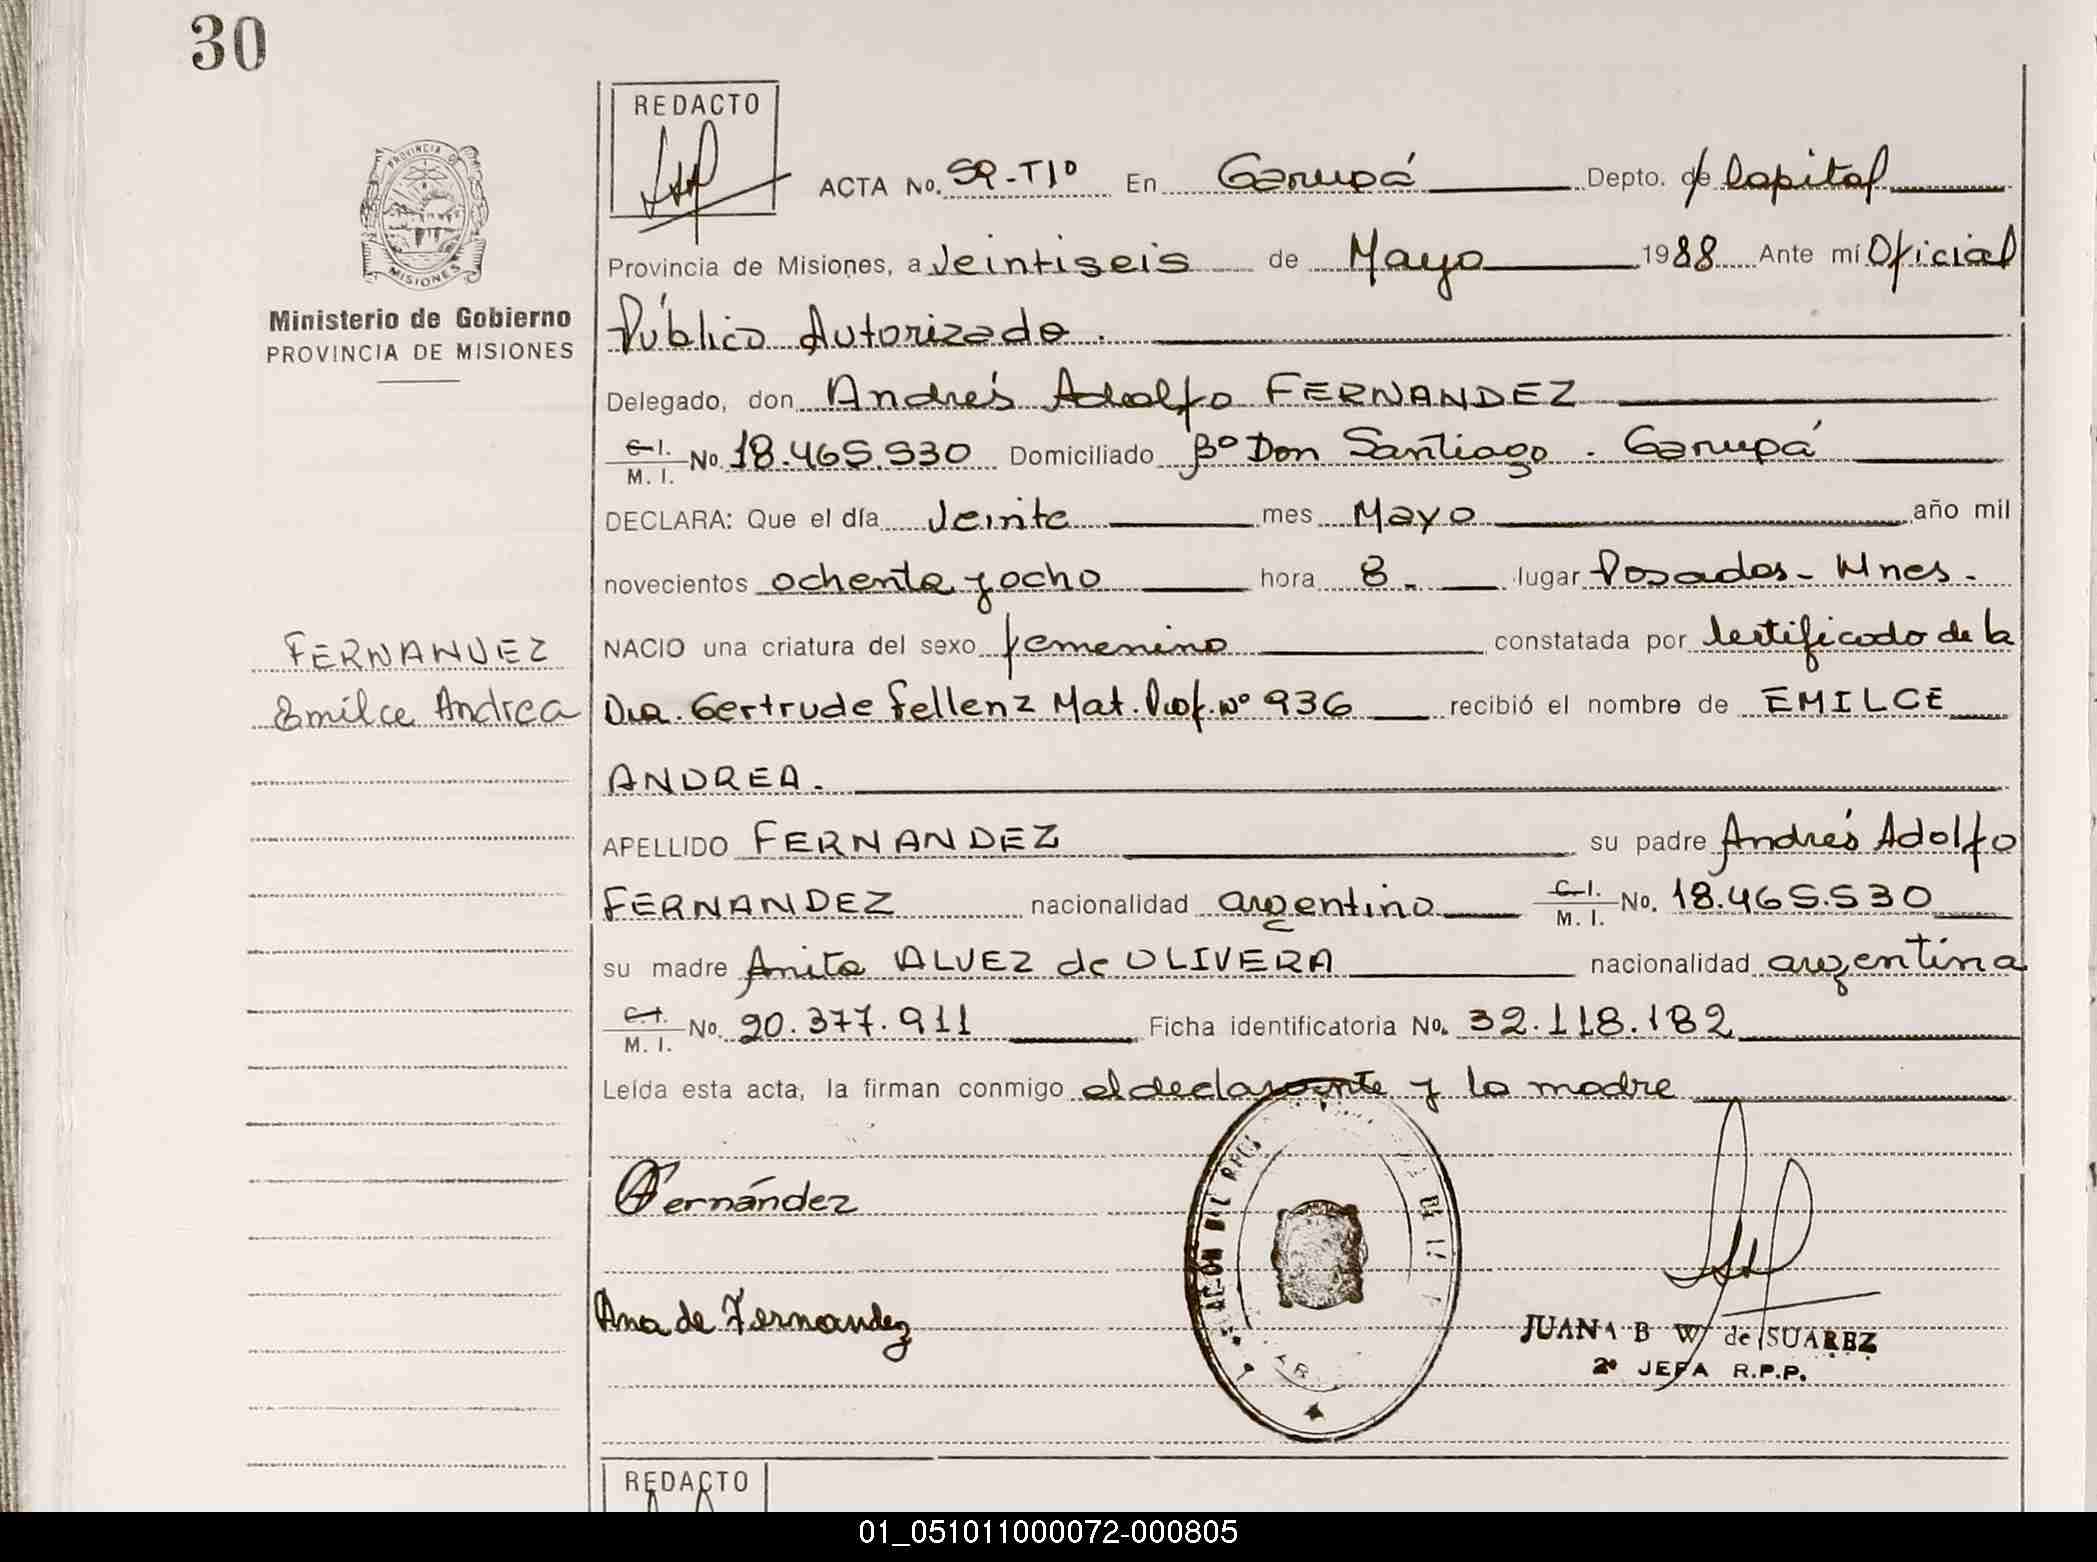 30
REDACTO
ACTA No. 59-T1º En Garupá Depto. de Capital
PROVINCIA DE
MISIONES
Provincia de Misiones, a veintiseis de Mayo 1988 Ante mí Oficial
Ministerio de Gobierno
PROVINCIA DE MISIONES
Público Autorizado.
Delegado, don Andrés Adolfo FERNANDEZ
C.I. M.I. No. 18.465.530 Domiciliado Bº Don Santiago. Garupá
DECLARA: Que el día veinte mes Mayo año mil
novecientos ochenta y ocho hora 8.- lugar Posadas- Mnes.-
FERNANDEZ
Emilce Andrea
NACIO una criatura del sexo femenino constatada por certificado de la
Dra. Gertrude Fellenz Mat. Prof. Nº 936 recibió el nombre de EMILCE
ANDREA.
APELLIDO FERNANDEZ su padre Andrés Adolfo
FERNANDEZ nacionalidad argentino C.I. M.I. No. 18.465.530
su madre Anita ALVEZ de OLIVERA nacionalidad argentina
C.I. M.I. No. 20.377.911 Ficha identificatoria No. 32.118.182
Leída esta acta, la firman conmigo el declarante y la madre
AFernández
Ana de Fernandez
JUANA B W de SUAREZ
2º JEFA R.P.P.
REDACTO
01_051011000072-000805